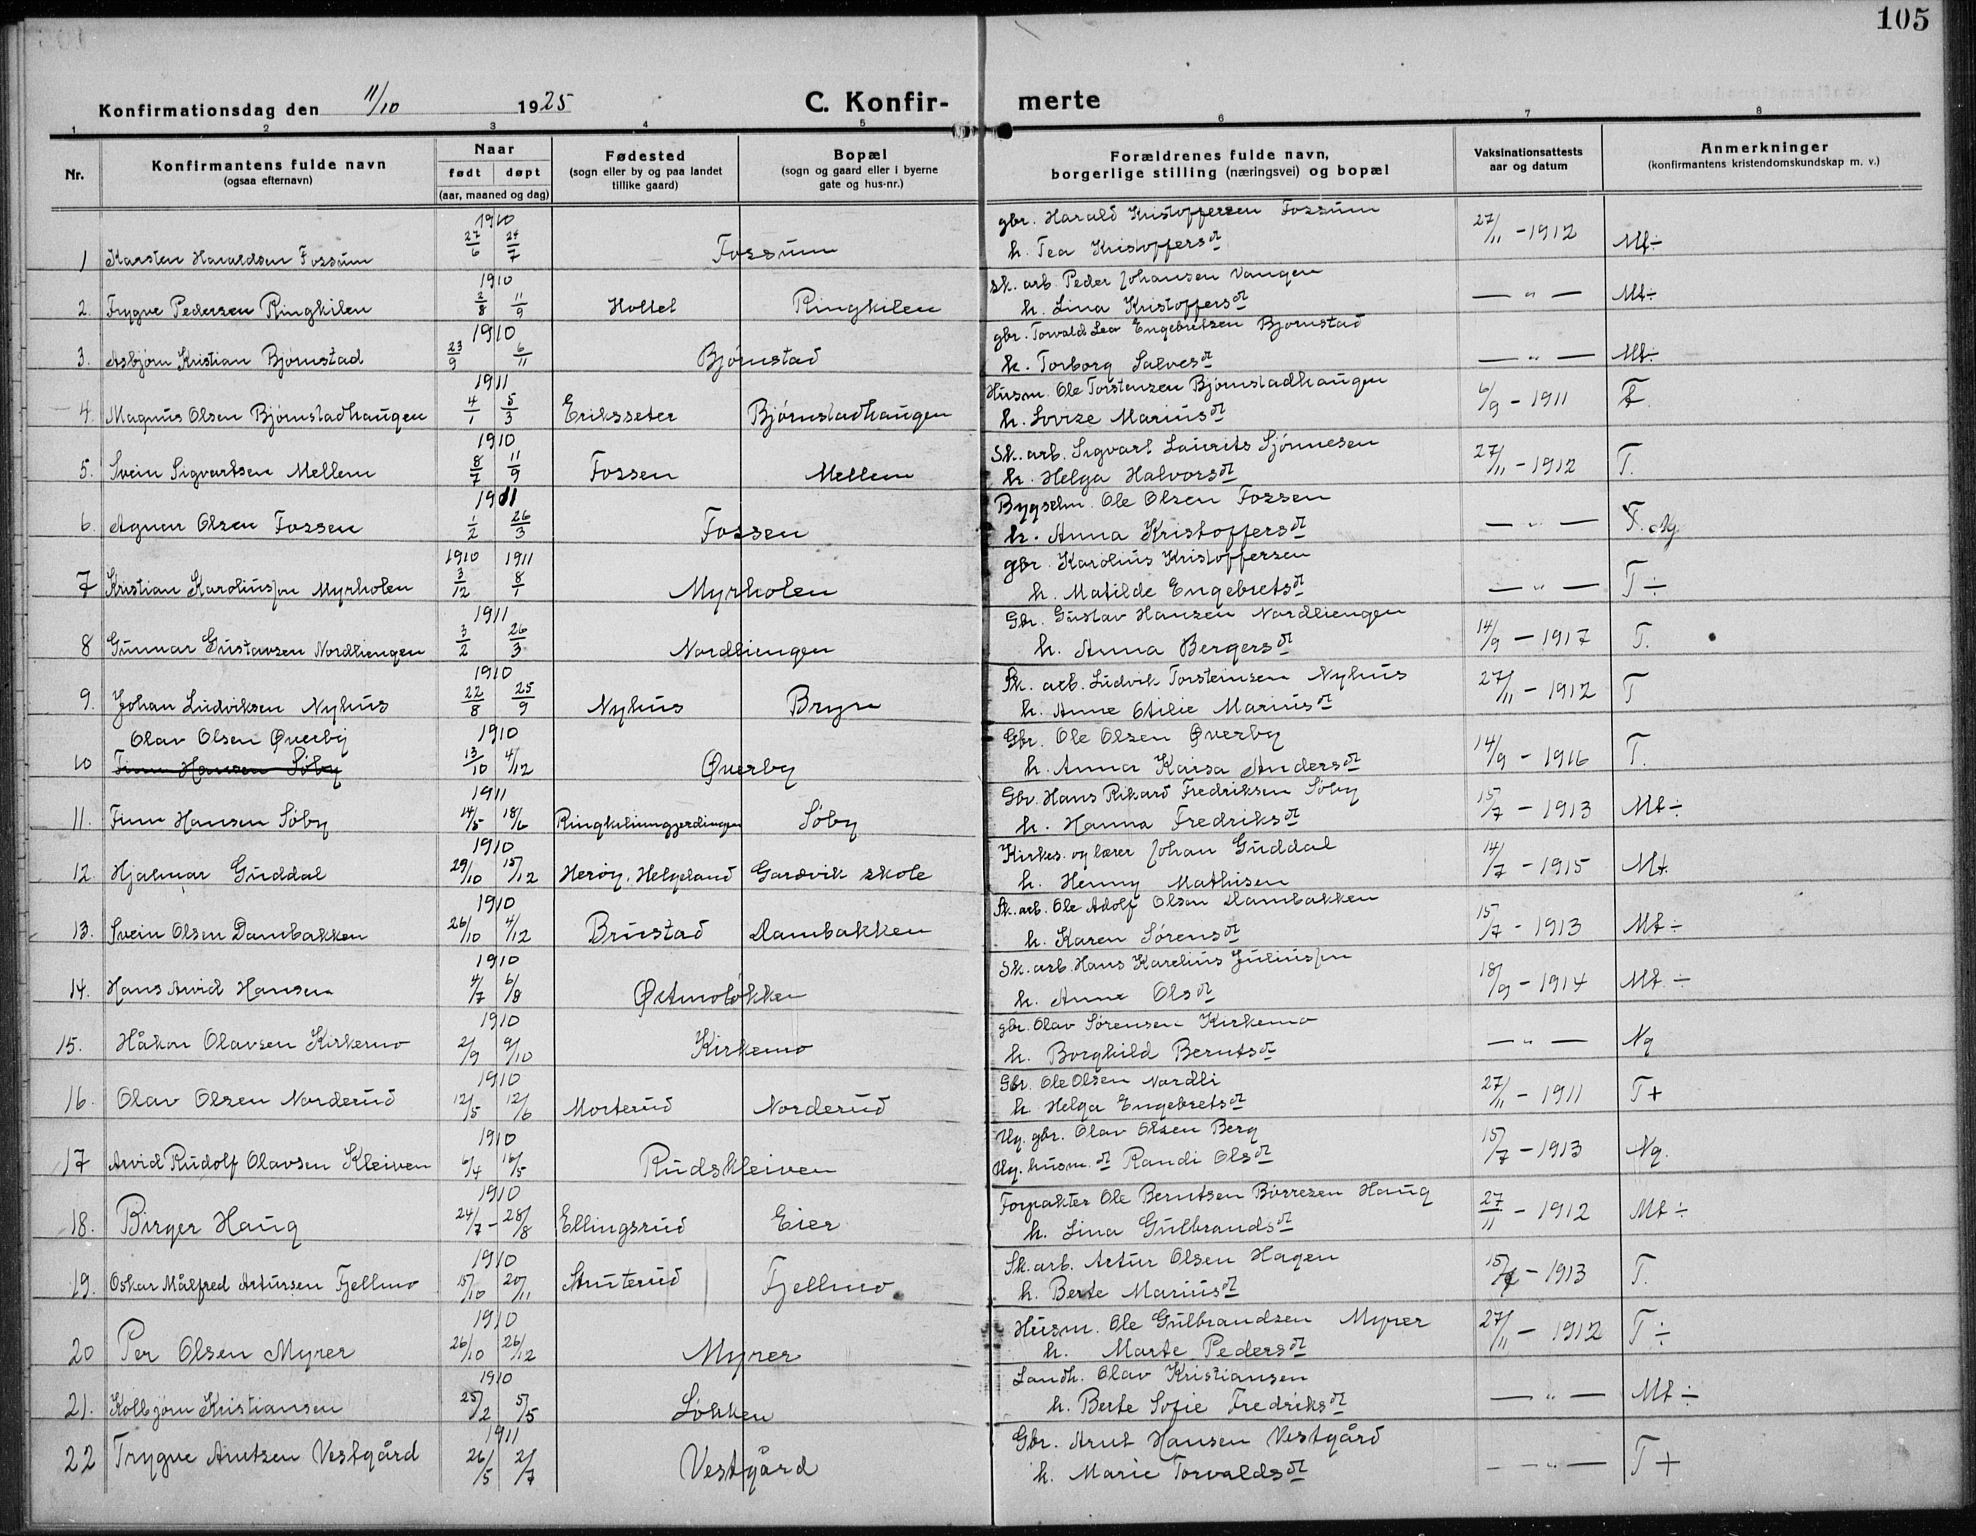 105
Konfirmationsdag den 11/10 1925 C. Konfir- merte
1 2 3 4 5 6 7 8
Nr. Konfirmantens fulde navn (ogsaa efternavn) Naar født døpt (aar, maaned og dag) Fødested (sogn eller by og paa landet tillike gaard) Bopæl (sogn og gaard eller i byerne gate og hus-nr.) Forældrenes fulde navn, borgerlige stilling (næringsvei) og bopæl Vaksinationsattests aar og datum Anmerkninger (konfirmantens kristendomskundskap m. v.)
1910 gbr. Harald Kristoffersen Fossum
1 Karsten Haraldsen Fossum 27/6 24/7 Fossum h. Tea Kristoffersdt 27/11 - 1912 Mt÷
1910 sk. arb. Peder Johansen Vangen
2. Trygve Pedersen Ringkilen 2/8 11/9 Holtet Ringkilen h. Lina Kristoffersdt — " — Mt÷
1910 gbr. Torvald Leo Engebretsen Bjørnstad
3. Asbjørn Kristian Bjørnstad 23/9 6/11 Bjørnstad h. Torborg Salvesdt — " — Mt÷
1911 Husm. Ole Torstensen Bjørnstadhaugen
4. Magnus Olsen Bjørnstadhaugen 4/1 5/3 Eriksseter Bjørnstadhaugen h. Lovise Mariusdt 6/9 - 1911 T.
1910 Sk. arb. Sigvart Laurits Sjønnesen
5. Svein Sigvartsen Mellem 8/7 11/9 Fossen Mellem h. Helga Halvorsdt 27/11 - 1912 T.
1911 Bygselm. Ole Olsen Fossen
6. Agnar Olsen Fossen 1/2 26/3 Fossen h. Anna Kristoffersdt — " — T. Ng
1910 1911 gbr. Karolius Kristoffersen
7 Kristian Karoliussen Myrholen 3/12 8/1 Myrholen h. Matilde Engebretsdt — " — T÷
1911 Gbr. Gustav Hansen Nordliengen
8 Gunnar Gustavsen Nordliengen 3/2 26/3 Nordliengen h. Anna Bergersdt 14/9 - 1917 T.
1910 Sk. arb. Ludvik Torsteinsen Nyhus
9. Johan Ludviksen Nyhus 22/8 25/9 Nyhus Bryn h. Anne Otilie Mariusdt 27/11 - 1912 T
Olav Olsen Øverby 1910 Gbr. Ole Olsen Øverby
10 Finn Hansen Söby 13/10 4/12 Øverby h. Anna Kaisa Andersdt 14/9 - 1916 T.
1911 Gbr. Hans Rikard Fredriksen Söby
11. Finn Hansen Söby 14/5 18/6 Ringkilinngjerdingen Söby h. Hanna Fredriksdt 15/7 - 1913 Mt÷
1910 Kirkes. og lærer Johan Guddal
12 Hjalmar Guddal 29/10 15/12 Herøy, Helgeland Gardvik skole h. Henny Mathisen 14/7 - 1915 Mt.
1910 Sk. arb. Ole Adolf Olsen Dambakken
13. Svein Olsen Dambakken 26/10 4/12 Brustad Dambakken h. Karen Sørensdt 15/7 - 1913 Mt÷
1910 Sk. arb. Hans Karelius Juliussen
14. Hans Arvid Hansen 4/7 6/8 Østmoløkken h. Anne Olsdt 18/9 - 1914 Mt. ÷
1910 gbr. Olav Sørensen Kirkemo
15. Håkon Olavsen Kirkemo 2/9 9/10 Kirkemo h. Borghild Berntsdt — " — Ng
1910 Gbr. Ole Olsen Nordli
16. Olav Olsen Norderud 12/5 12/6 Morterud Norderud h. Helga Engebretsdt 27/11 - 1911 T+
1910 Ug. gbr. Olav Olsen Berg
17 Arvid Rudolf Olavsen Kleiven 6/4 16/5 Rudskleiven Ug. husm. dt Randi Olsdt 15/7 - 1913 Ng.
1910 Forpakter Ole Berntsen Börresen Haug
18. Birger Haug 24/7 - 28/8 Ellingsrud Eier h. Lina Gulbrandsdt 27/11 - 1912 Mt÷
1910 Sk. arb. Artur Olsen Hagen
19. Oskar Målfred Artursen Fjellmo 15/10 20/11 Struterud Fjellmo h. Berte Mariusdt 15/7 - 1913 T.
1910 Husm. Ole Gulbrandsen Myrer
20 Per Olsen Myrer 26/10 26/12 Myrer h. Marte Pedersdt 27/11 - 1912 T÷
1910 Landh. Olav Kristiansen
21. Kolbjørn Kristiansen 25/2 5/5 Løkken h. Berte Sofie Fredriksdt — " — Mt÷
1911 Gbr. Arnt Hansen Vestgård
22 Trygve Arntsen Vestgård 26/5 2/7 Vestgård h. Marie Torvaldsdt — " — T+